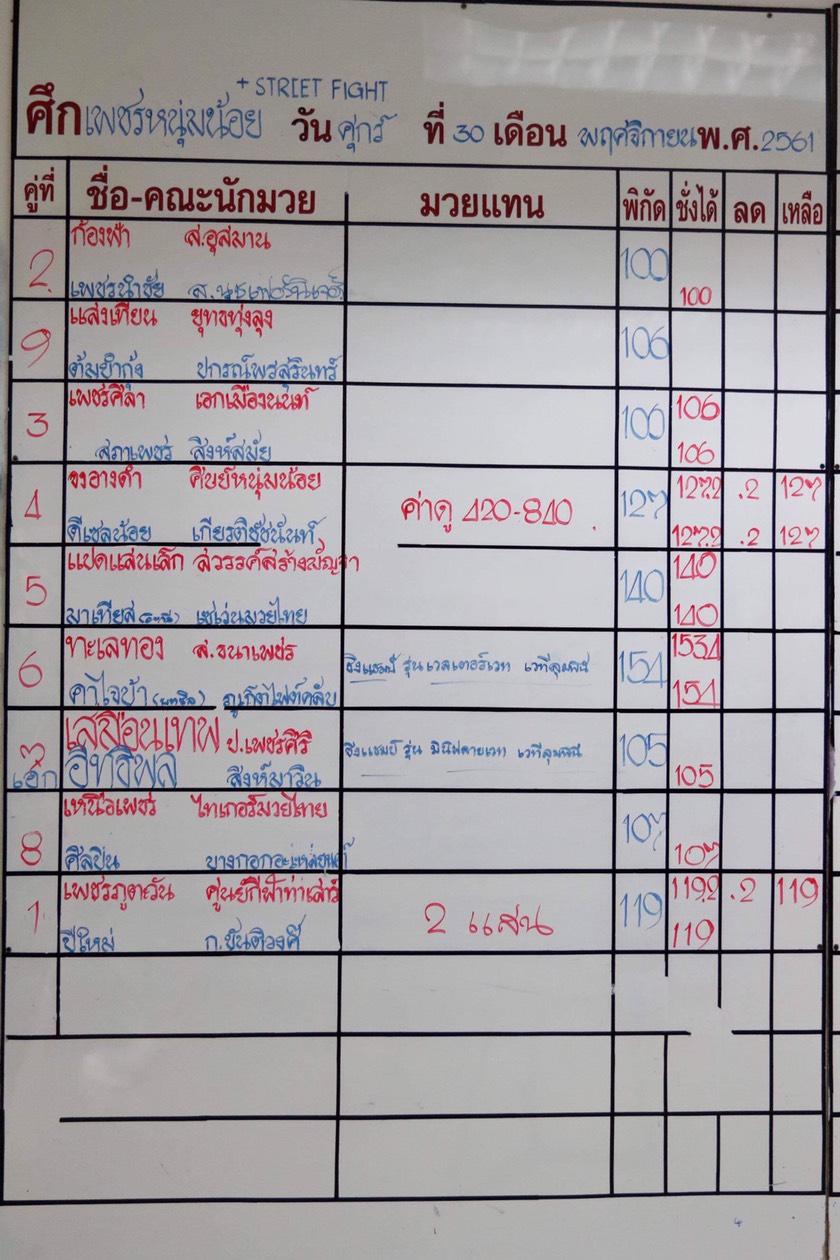 + STREET FIGHT
ศึกเพชรหนุ่มน้อย วันศุกร์ ที่ 30 เดือน พฤศจิกายน พ.ศ. 2561
คู่ที่ ชื่อ-คณะนักมวย มวยแทน พิกัด ชั่งได้ ลด เหลือ
2 ก้องฟ้า ส.อุสมาน 100
เพชรนำชัย 100
9 แสงเทียน ยุทธทุ่งลุง 106
ต้มยำกุ้ง ปกรณ์พรสุรินทร์
3 เพชรศิลา เอกเมืองนนท์ 100 106
สภาเพชร สิงห์สมัย 106
4 จงอางดำ ศิษย์หนุ่มน้อย ค่าดู 420-840 127 127.2 .2 127
ดีเซลน้อย เกียรติชัชนันท์ 127.2 .2 127
5 แปดแสนเล็ก สวรรค์สร้างปัญญา 140 140
มาเทียส เซเว่นมวยไทย 140
6 ทะเลทอง ส.ธนาเพชร ชิงแชมป์ รุ่น เวลเตอร์เวท เวทีลุมพินี 154 153.4
คาไจบ้า ภูเก็ตไฟต์คลับ 154
7 เสมือนเทพ ป.เพชรศิริ ชิงแชมป์ รุ่น มินิฟลายเวท เวทีลุมพินี 105
เอก อิทธิพล สิงห์มาวิน 105
8 เหนือเพชร ไทเกอร์มวยไทย 107
ศิลปิน 107
1 เพชรภูตะวัน ศูนย์กีฬาท่าเสาร์ 2 แสน 119 119.2 .2 119
ปีใหม่ ก.ขันติวงศ์ 119